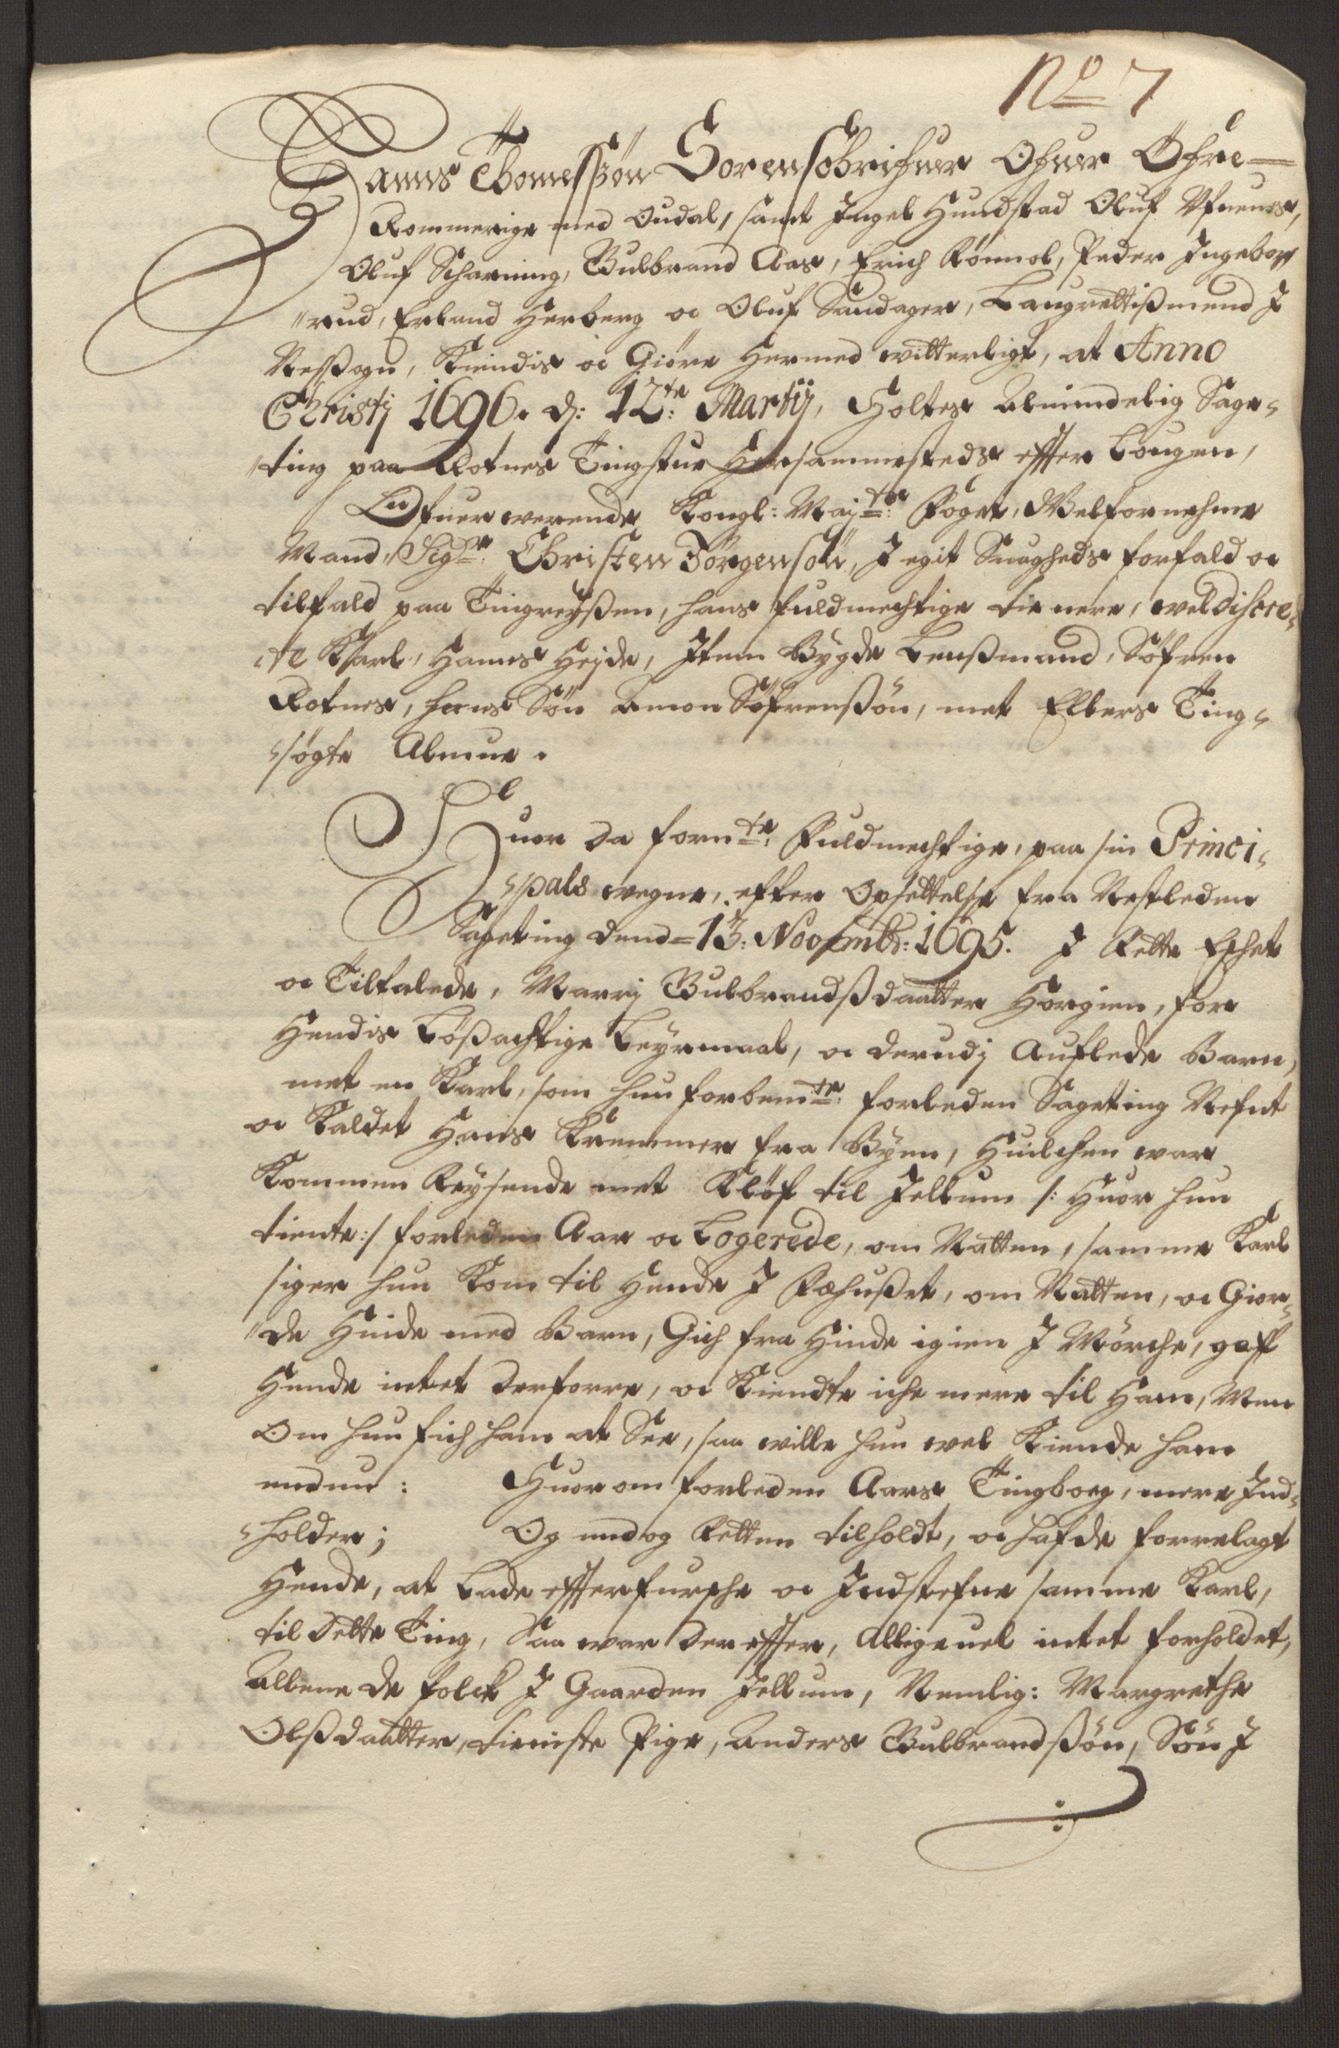 No 7
Hanns Thomesßøn Sorenschrifuer Ofuer Øfre-
Rommerige med Oudal, samt Ingel Hundstad Oluf
Oluf Scharning, Gulbrand Aas, Erich Rønnol, Peder Ingebor
"rud, Erland Herberg oc Oluf Sandager, Laugrettißmend J
Neßsogn, Kiendis oc Giøre Hermed witterligt, at Anno
Christj 1696. d: 12te: Martij, Holtes Almindelig Sage-
"ting paa Rotnes Tingstue Hersammesteds effter Lougen,
Ofuerwerende Kongl: Maytts: Foget, Welfornehme
Mand, Sigr: Christen Jørgensøn, J egit Suagheds forfald oc
tilfald paa Tingreyßen, hans fuldmechtige tienere, weldiscre-
te Karl, Hanns Heyde, Item Bygde Lenßmand, Søfren
Rotnes, hans Søn Amon Søfrensßøn, met Ellers Ting-
-søgte Almue.
Huor da fornte: Fuldmechtige, paa sin Princi-
-pals wegne, effter Opsettelse fra Nestleden
Sageting dend= 13: Novembr: 1695. J Rette Eschet
oc Tiltalede, Marrj Gulbrandßdaatter Horgien, for
Hendis Løßachtige Leyermaal, oc derudj Auflede Barn,
met en Karl, som hun forbemte: forleden Sageting Nefnt
oc Kaldet Hans Kremmer fra Byen, Huilchen war
Kommen Reysende met Kløf til Jellum /: Huor hun
tiente :/ forleden Aar oc Logerede, om Natten, samme Karl
siger hun Kom til Hende J Fæhußet, om Natten, oc Gior-
"de Hinde med Barn, Gich fra Hinde igien J Mørche, gaff
Hende intet derforre, oc Kiendte iche mere til Ham, Men
Om hun fich ham at See, saa wille hun wel Kiende ham
endnu: Huorom forleden Aars Tingboeg, mere Ind-
-holder; Og endog Retten tilholdt, oc hafde forrelagt
Hende, at Lade effterfursche oc Indstefne samme Karl,
til dette Ting, Saa war dereffter, Alligeuel intet forholdet,
Allene de folck J Gaarden Jellum, Nemlig: Margrethe
Olßdaatter, tieniste Pige, Anders Gulbrandßøn, Søn J